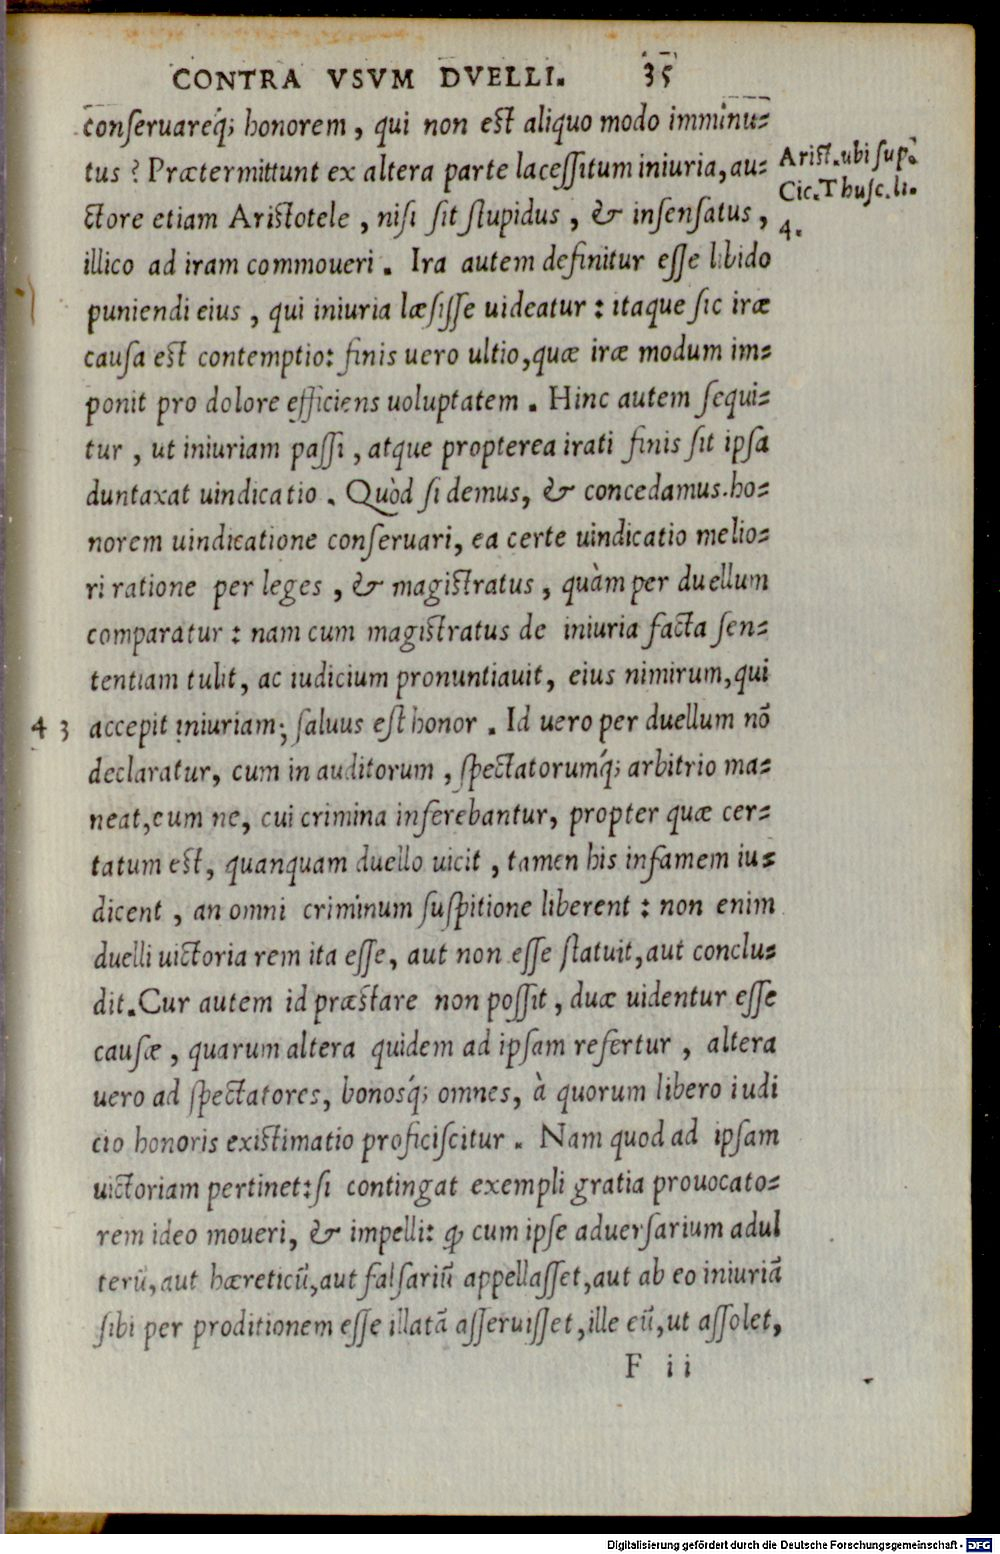 CONTRA VSVM DVELLI. 35
conseruareq́; honorem, qui non est aliquo modo imminu-
tus? Prætermittunt ex altera parte lacessitum iniuria, au-
ctore etiam Aristotele, nisi sit stupidus, & insensatus,
illico ad iram commoueri. Ira autem definitur esse libido
puniendi eius, qui iniuria læsisse uideatur: itaque sic iræ
causa est contemptio: finis uero ultio, quæ iræ modum im-
ponit pro dolore efficiens uoluptatem. Hinc autem sequi-
tur, ut iniuriam passi, atque propterea irati finis sit ipsa
duntaxat uindicatio. Quòd si demus, & concedamus. ho-
norem uindicatione conseruari, ea certe uindicatio melio-
ri ratione per leges, & magistratus, quàm per duellum
comparatur: nam cum magistratus de iniuria facta sen-
tentiam tulit, ac iudicium pronuntiauit, eius nimirum, qui
accepit iniuriam; saluus est honor. Id uero per duellum nō
declaratur, cum in auditorum, spectatorumq́; arbitrio ma-
neat, eum ne, cui crimina inferebantur, propter quæ cer-
tatum est, quanquam duello uicit, tamen his infamem iu-
dicent, an omni criminum suspitione liberent: non enim
duelli uictoria rem ita esse, aut non esse statuit, aut conclu-
dit. Cur autem id præstare non possit, duæ uidentur esse
causæ, quarum altera quidem ad ipsam refertur, altera
uero ad spectatores, bonosq́; omnes, à quorum libero iudi
cio honoris existimatio proficiscitur. Nam quod ad ipsam
uictoriam pertinet: si contingat exempli gratia prouocato-
rem ideo moueri, & impelli: ꝙ cum ipse aduersarium adul
terū, aut hæreticū, aut falsariū appellasset, aut ab eo iniuriā
sibi per proditionem esse illatā asseruisset, ille eū, ut assolet,
F ii
Arist. ubi sup.
Cic. Thusc. li.
4.
43
Digitalisierung gefördert durch die Deutsche Forschungsgemeinschaft - DFG